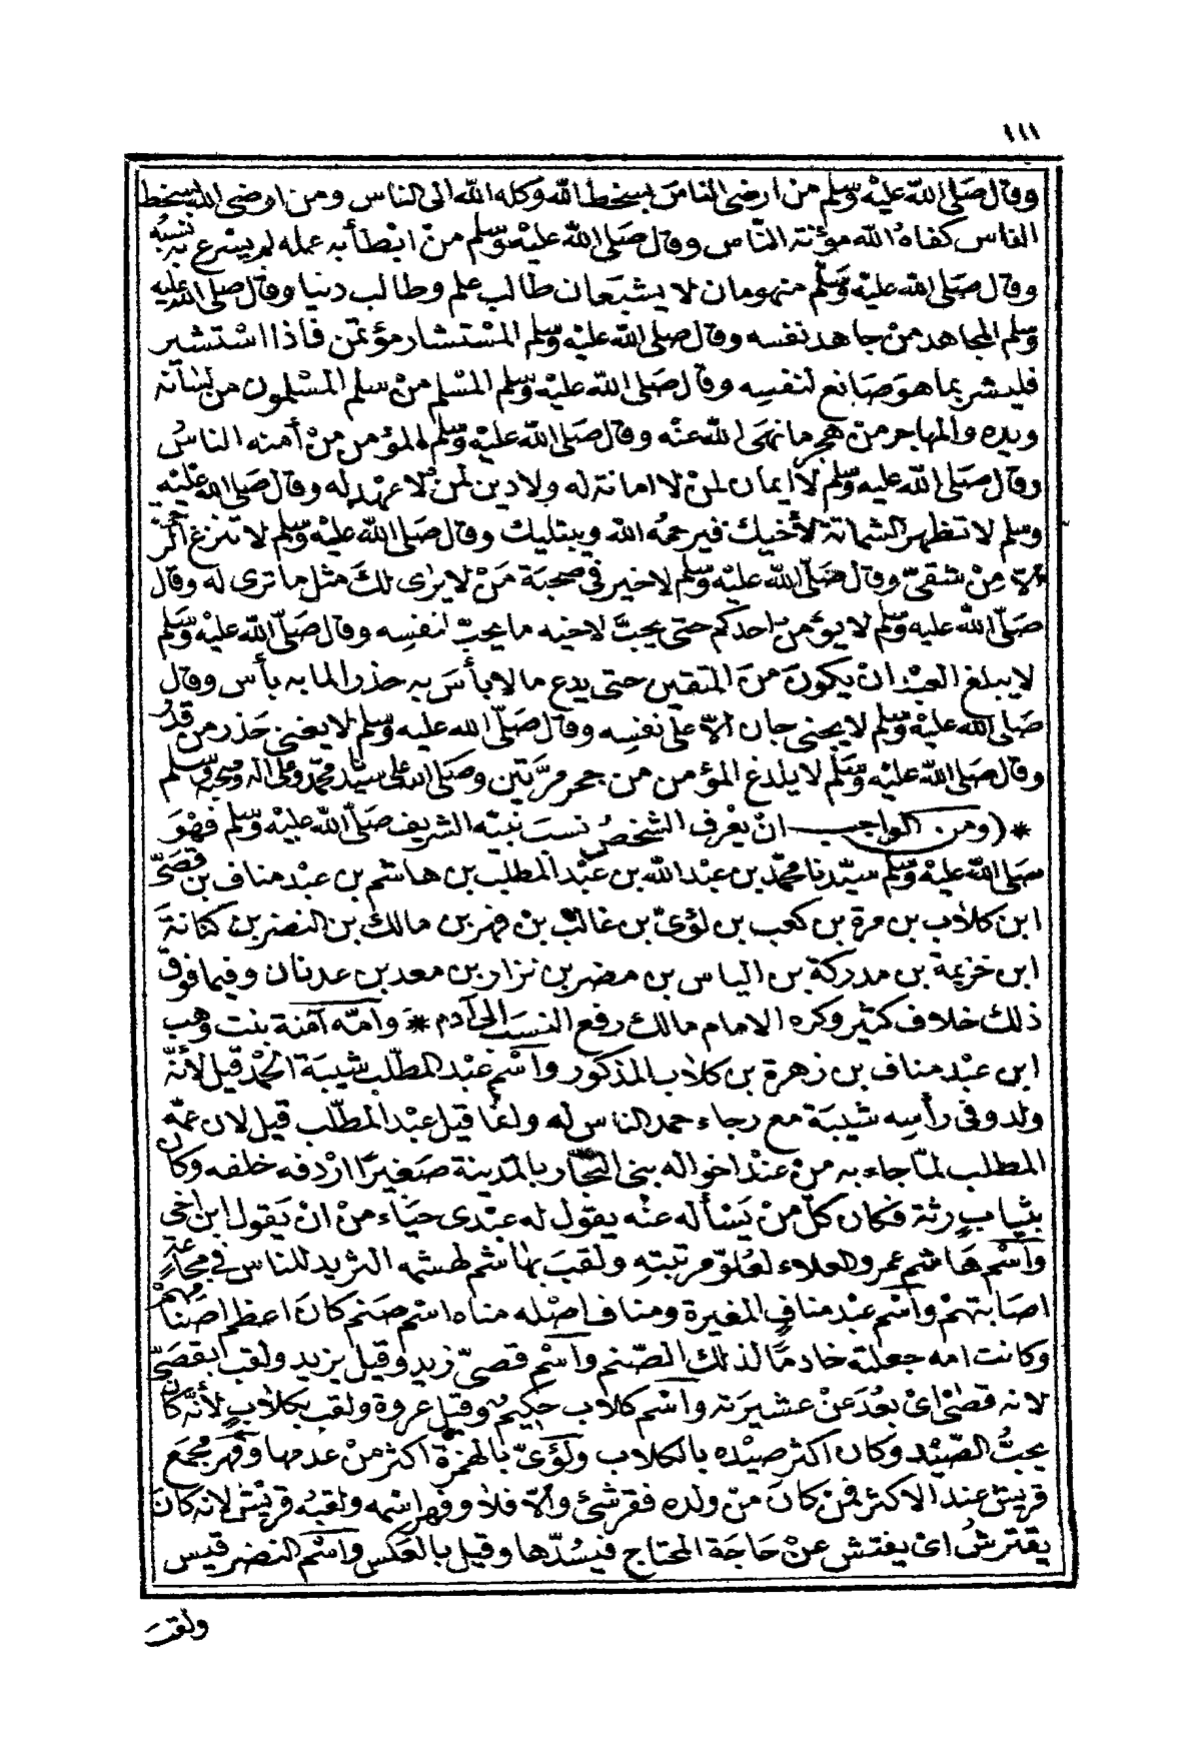 ١١١
وقال صلى الله عليه وسلم من ارضى الناس بسخط الله وكله الله الى الناس ومن ارضى الله بسخط
الناس كفاه الله مؤنة الناس وقال صلى الله عليه وسلم من ابطأ به عمله لم يسرع به نسبه
وقال صلى الله عليه وسلم منهومان لا يشبعان طالب علم وطالب دنيا وقال صلى الله عليه
وسلم المجاهد من جاهد نفسه وقال صلى الله عليه وسلم المستشار مؤتمن فاذا استشير
فليشر بما هو صانع لنفسه وقال صلى الله عليه وسلم المسلم من سلم المسلمون من لسانه
ويده والمهاجر من هجر ما نهى الله عنه وقال صلى الله عليه وسلم المؤمن من أمنه الناس
وقال صلى الله عليه وسلم لا ايمان لمن لا امانة له ولا دين لمن لا عهد له وقال صلى الله عليه
وسلم لا تظهر الشماتة لأخيك فيرحمه الله ويبتليك وقال صلى الله عليه وسلم لا تنزع الرحمة
الا من شقىّ وقال صلى الله عليه وسلم لا خير فى صحبة من لا يرى لك مثل ما ترى له وقال
صلى الله عليه وسلم لا يؤمن احدكم حتى يحبّ لاخيه ما يحبّ لنفسه وقال صلى الله عليه وسلم
لا يبلغ العبد ان يكون من المتقين حتى يدع ما لا بأس به حذرا لما به بأس وقال
صلى الله عليه وسلم لا يجنى جان الاّ على نفسه وقال صلى الله عليه وسلم لا يغنى حذر من قدر
وقال صلى الله عليه وسلم لا يلدغ المؤمن من جحر مرّتين وصلى الله على سيدنا محمد وعلى اله وصحبه وسلم
* (ومن الواجب ان يعرف الشخص نسب نبيه الشريف صلى الله عليه وسلم فهو
صلى الله عليه وسلم سيّدنا محمد بن عبد الله بن عبد المطلب بن هاشم بن عبد مناف بن قصىّ
ابن كلاب بن مرة بن كعب بن لؤىّ بن غالب بن فهر بن مالك بن النضر بن كنانة
ابن خزيمة بن مدركة بن الياس بن مضر بن نزار بن معد بن عدنان وفيما فوق
ذلك خلاف كثير وكره الامام مالك رفع النسب الى آدم * وامّه آمنة بنت وهب
ابن عبد مناف بن زهرة بن كلاب المذكور واسم عبد المطّلب شيبة الحمد قيل لأنّه
ولد وفى رأسه شيبة مع رجاء حمد الناس له وانما قيل عبد المطّلب قيل لان عمّه
المطلب لمّا جاء به من عند اخواله بنى النجّار بالمدينة صغيرا اردفه خلفه وكان
بثياب رثة فكان كلّ من يسأله عنه يقول له عبدى حياء من ان يقول ابن اخى
واسم هاشم عمرو العلاء لعلوّ مرتبته ولقب بهاشم لهشمه الثريد للناس فى مجاعة
اصابتهم واسم عبد مناف المغيرة ومناف اصله مناة اسم صنم كان اعظم اصنامهم
وكانت امه جعلته خادما لذلك الصّنم واسم قصىّ زيد وقيل يزيد ولقب بقصىّ
لانه قصى اى بعد عن عشيرته واسم كلاب حكيم وقيل عروة ولقب بكلاب لأنه كان
يحبّ الصّيد وكان اكثر صيده بالكلاب ولؤىّ بالهمزة اكثر من عدمها وفهر مجمع
قريش عند الاكثر فمن كان من ولده فقرشىّ والّا فلا وفهر اسمه ولقبه قريش لانه كان
يقترش اى يفتش عن حاجة المحتاج فيسدّها وقيل بالعكس واسم النضر قيس
ولقب